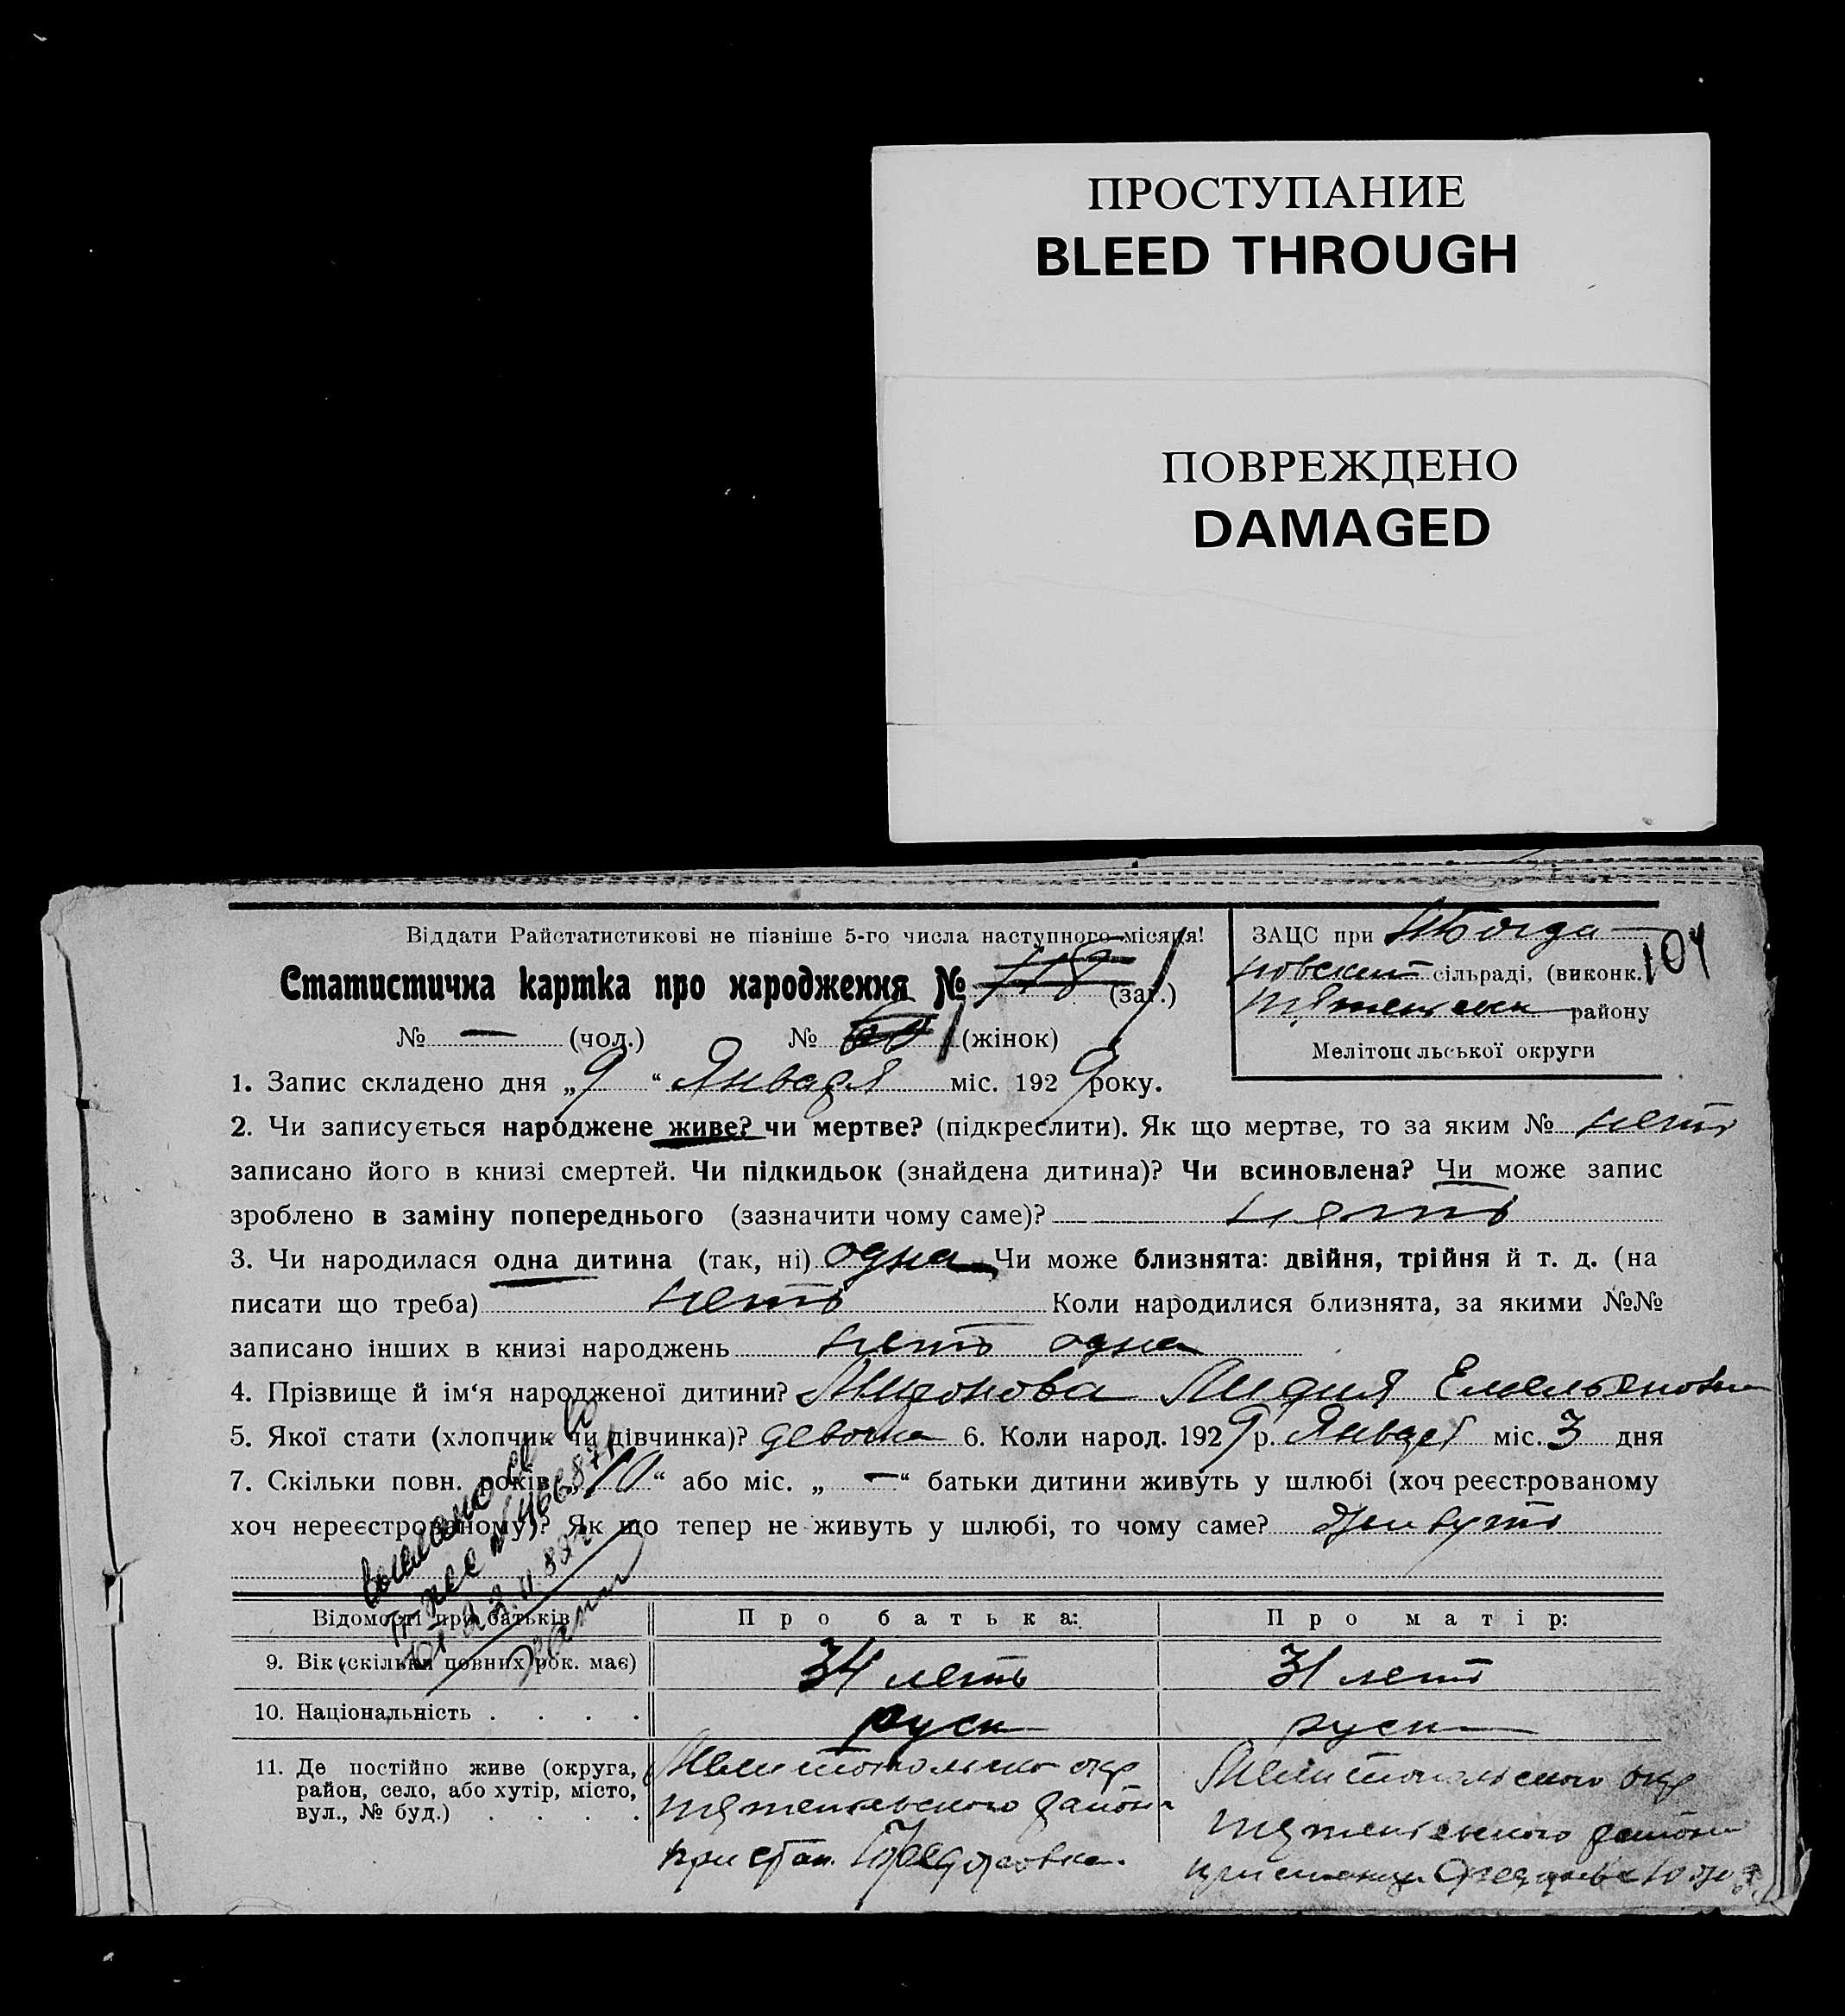 ПРОСТУПАНИЕ
BLEED THROUGH
ПОВРЕЖДЕНО
DAMAGED
Віддати Райстатистикові не пізніше 5-го числа наступного місяця!
ЗАЦС при Н Богда-
104
новский сільраді, (виконк.)
району
Мелітопільської округи
Статистична картка про народження № (заг.) 1
№ — (чол.) № 1 (жінок)
1. Запис складено дня „9“ Января міс. 1929 року.
2. Чи записується народжене живе? чи мертве? (підкреслити). Як що мертве, то за яким № нетъ
записано його в книзі смертей. Чи підкидьок (знайдена дитина)? Чи всиновлена? Чи може запис
зроблено в заміну попереднього (зазначити чому саме)? нетъ
3. Чи народилася одна дитина (так, ні) одна Чи може близнята: двійня, трійня й т. д. (на
писати що треба) нетъ Коли народилися близнята, за якими №№
записано інших в книзі народжень нетъ одна
4. Прізвище й ім‘я народженої дитини? Лидия Емельяновна
5. Якої стати (хлопчик чи дівчинка)? девочка 6. Коли народ. 1929 р. Январ міс. 3 дня
7. Скільки повн. років „10“ або міс. „—“ батьки дитини живуть у шлюбі (хоч реєстрованому
хоч нереєстрованому)? Як що тепер не живуть у шлюбі, то чому саме? живутъ
Відомості про батьків
Про батька:
Про матір:
9. Вік (скільки повних рок. має)
34 летъ
31 летъ
10. Національність . . . .
руск
руск
11. Де постійно живе (округа,
район, село, або хутір, місто,
вул., № буд.) . . . .
Мелитопольско окр
района
при стан. Федоровка
Мелитопольского окр
района